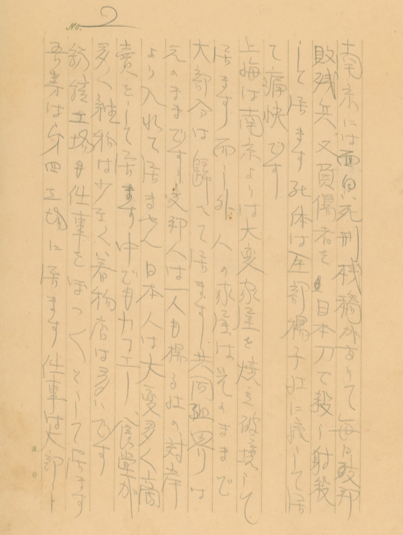 No. 2
南京には面白い死刑桟橋がありて毎日敗邦
敗残兵又負傷者を日本刀で殺し射殺
して居ます死体は全部揚子江に流して居
て痛快です
上海は南京よりは大変家屋を焼き破壊して
居ます 人の家屋は元のままで
大部分は 居ます共同租界りは
元のままです支那人は一人も揚子江の対岸
より入れて居ません日本人は大変多く商
売をして居ます中でもカフエー食堂が
多く雑物は少なく着物店は多いです
紡績工場も仕事をぼつぼつとして居ます
吾々は第四工場に居ます仕事は大部